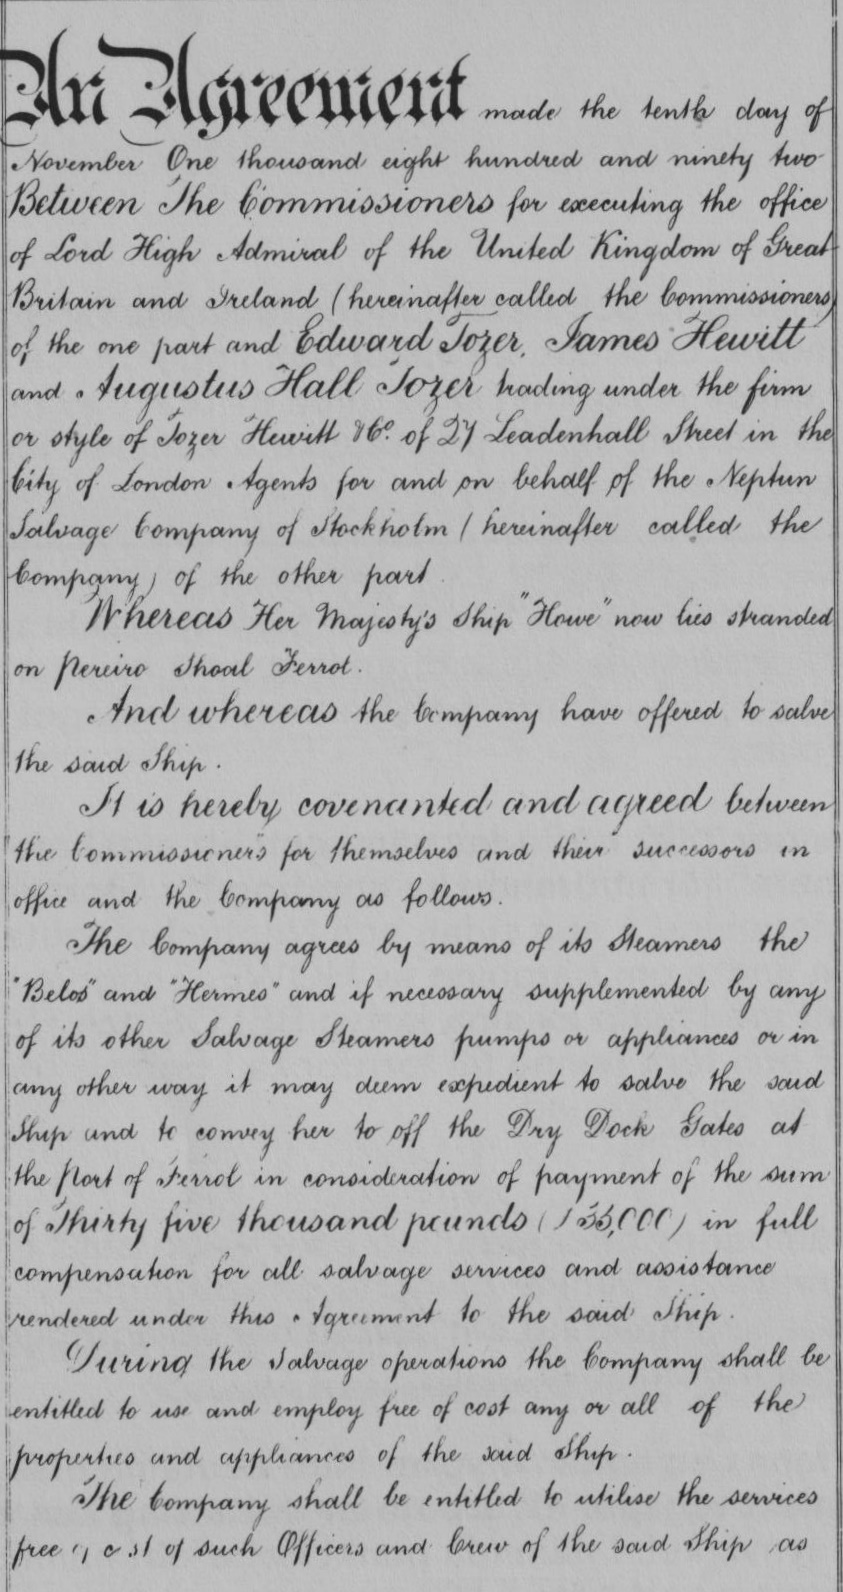 An Agreement made the tenth day of
November One thousand eight hundred and ninety two
Between The Commissioners for executing the office
of Lord High Admiral of the United Kingdom of Great
Britain and Ireland (hereinafter called the Commissioners)
of the one part and Edward Tozer, James Hewitt
and Augustus Hall Tozer trading under the firm
or style of Tozer Hewitt & Co. of 27 Leadenhall Street in the
City of London Agents for and on behalf of the Neptun
Salvage Company of Stockholm (hereinafter called the
Company) of the other part.
Whereas Her Majesty's Ship "Howe" now lies stranded
on Pereiro Shoal Ferrol.
And whereas the Company have offered to salve
the said Ship.
It is hereby covenanted and agreed between
the Commissioners for themselves and their successors in
office and the Company as follows.
The Company agrees by means of its Steamers the
"Belos" and "Hermes" and if necessary supplemented by any
of its other Salvage Steamers pumps or appliances or in
any other way it may deem expedient to salve the said
Ship and to convey her to off the Dry Dock Gates at
the Port of Ferrol in consideration of payment of the sum
of Thirty five thousand pounds (£35,000) in full
compensation for all salvage services and assistance
rendered under this Agreement to the said Ship.
During the Salvage operations the Company shall be
entitled to use and employ free of cost any or all of the
properties and appliances of the said Ship.
The Company shall be entitled to utilise the services
free of cost of such Officers and Crew of the said Ship as